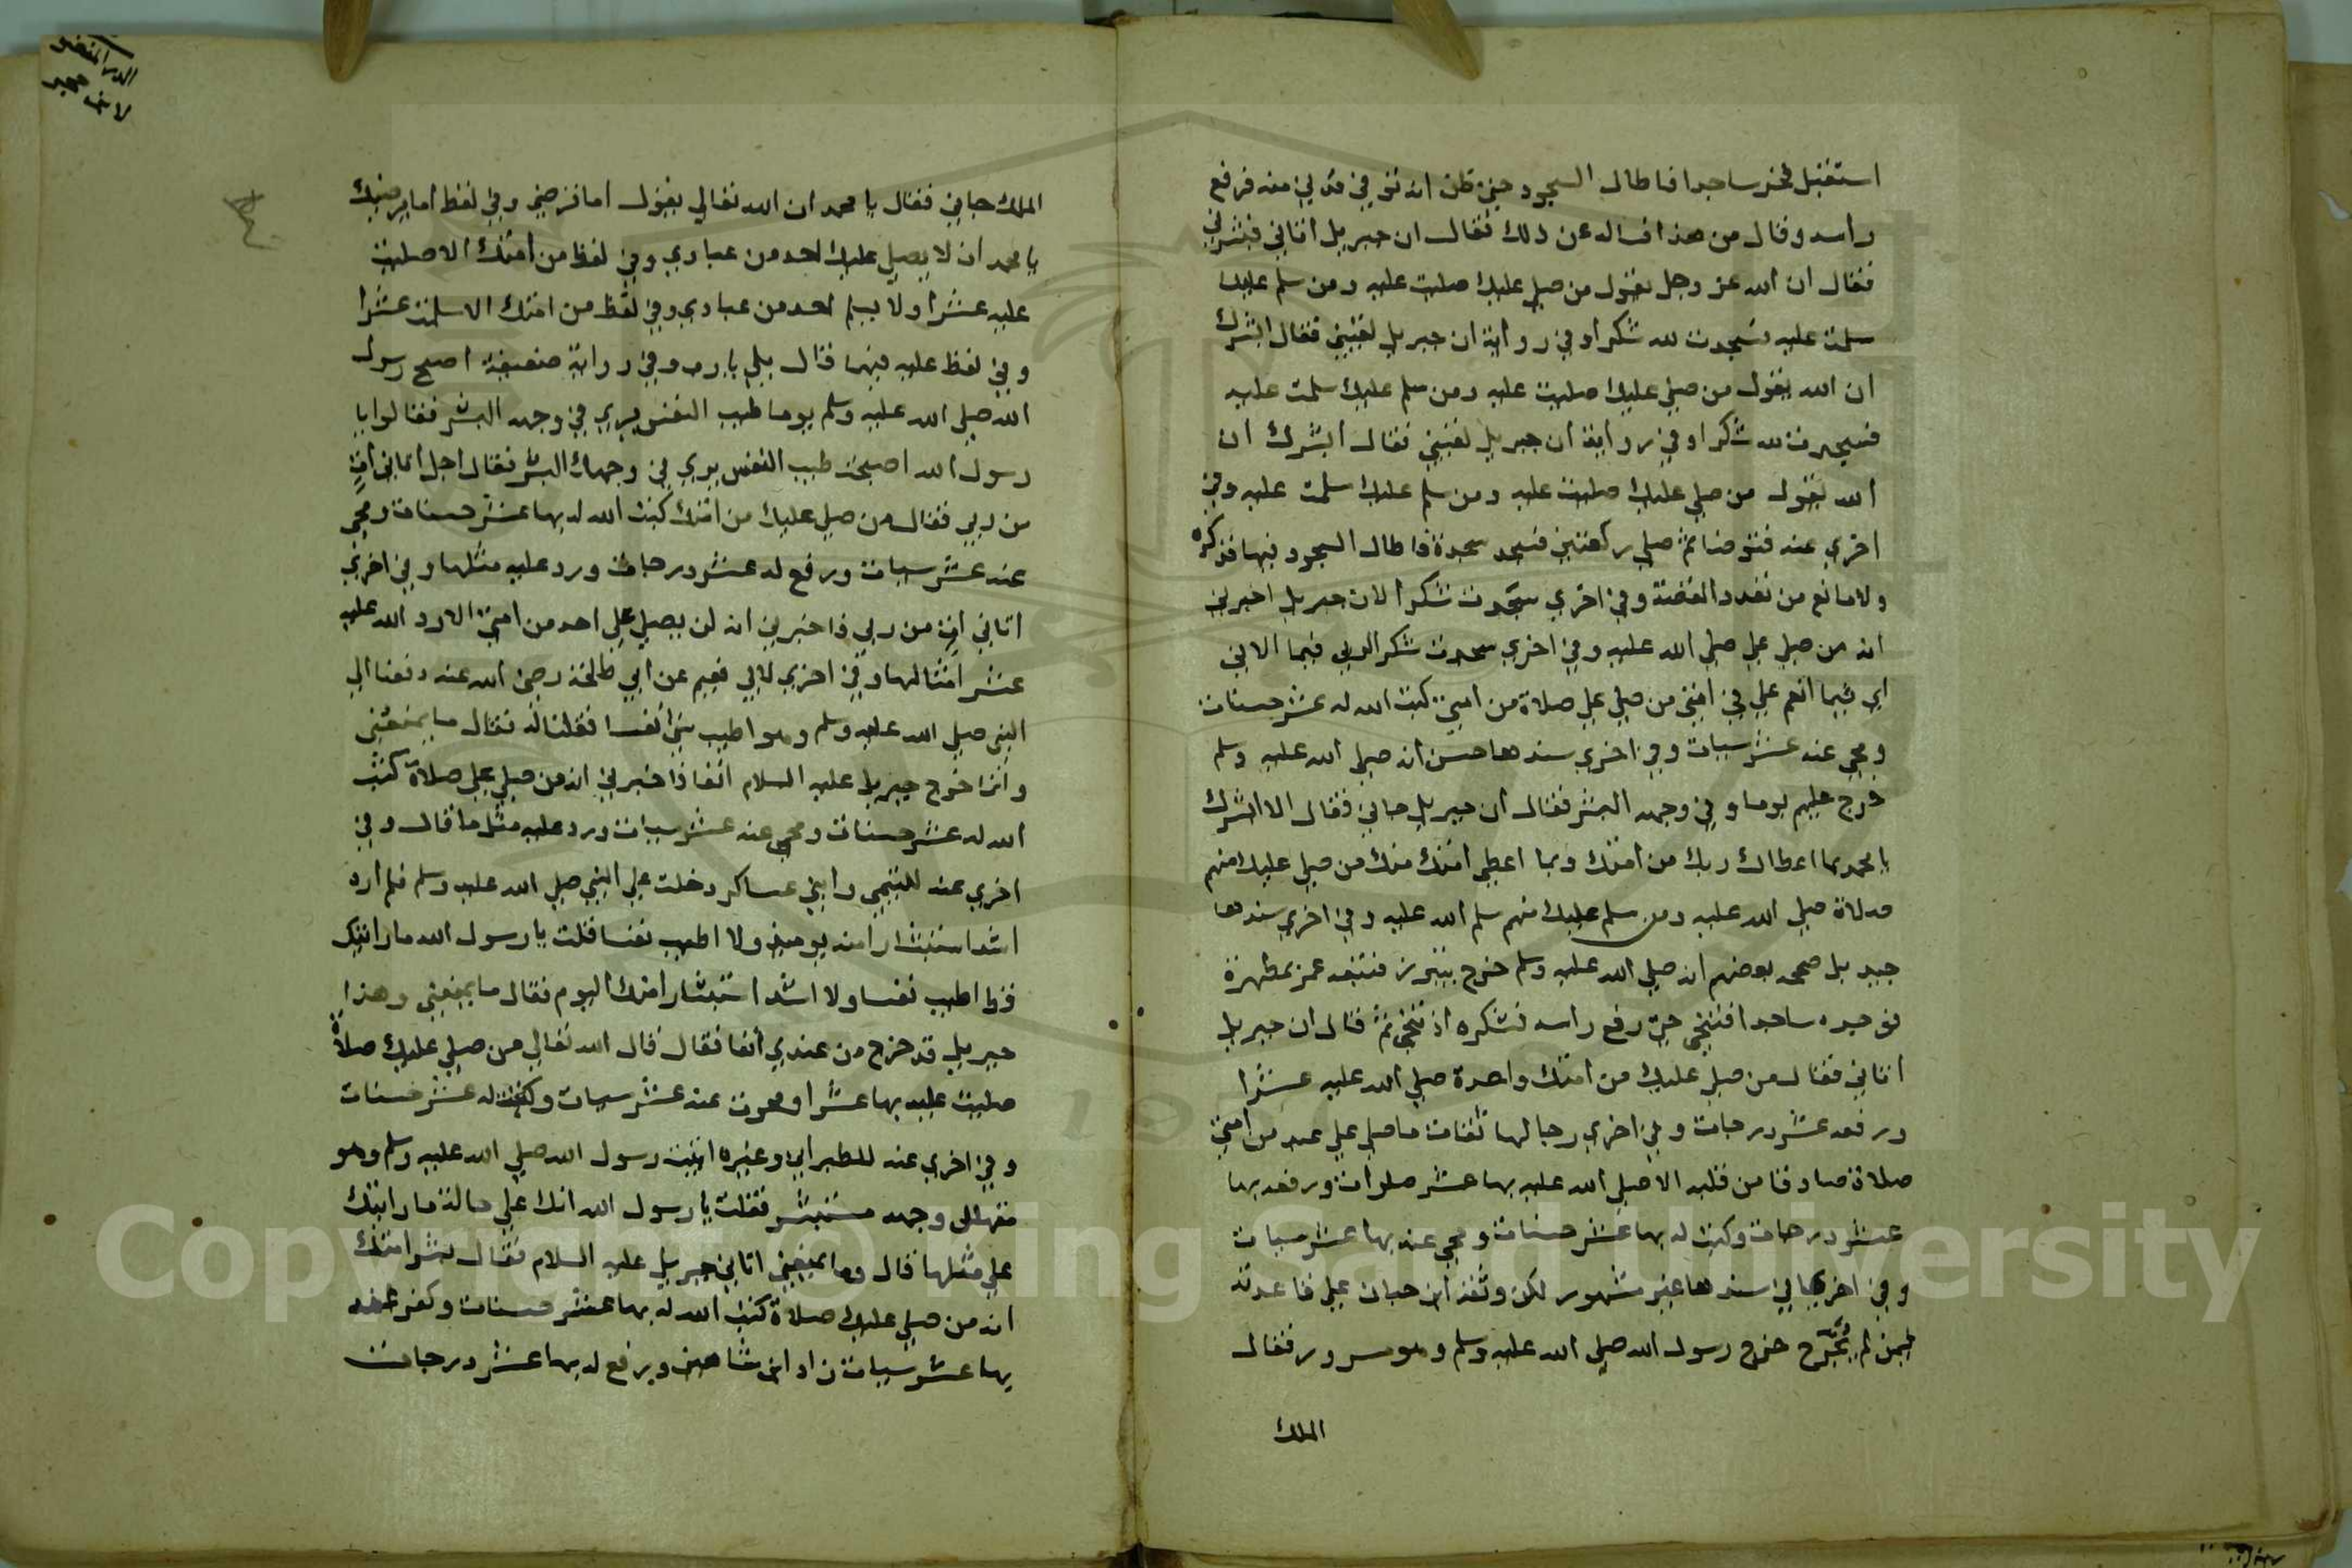 استقبل فخر ساجدا فاطال السجود حتى ظن انه توفي فدني منه فرفع
راسه وقال من هذا فساله عن ذلك فقال ان جبريل اتاني فبشرني
فقال ان الله عز وجل يقول من صلي عليك صليت عليه ومن سلم عليك
سلمت عليه فسجدت لله شكرا وفي رواية ان جبريل لقيني فقال ابشرك
ان الله يقول من صلي عليك صليت عليه ومن سلم عليك سلمت عليه
فسجدت لله شكرا وفي رواية ان جبريل لقيني فقال ابشرك ان
الله يقول من صلي عليك صليت عليه ومن سلم عليك سلمت عليه وفي
اخري عنه فتوضا ثم صلي ركعتين فسجد سجدة فاطال السجود فيها فذكره
ولا مانع من تعدد القصة وفي اخري سجدت شكرا لان جبريل اخبرني
انه من صلي علي صلي الله عليه وفي اخري سجدت شكرا لربي فيما الاني
اي فيما انعم علي في امتي من صلي علي صلاة من امتي كتب الله له عشر حسنات
ومحي عنه عشر سيات وفي اخري سندها حسن انه صلي الله عليه وسلم
خرج عليهم يوما وفي وجهه البشر فقال ان جبريل جاني فقال الا ابشرك
يا محمد بما اعطاك ربك من امتك وبما اعطي امتك منك من صلي عليك منهم
صلاة صلي الله عليه ومن سلم عليك منهم سلم الله عليه وفي اخري سندها
جيد بل صححه بعضهم انه صلي الله عليه وسلم خرج يتبرز فتبعه عمر بمطهرة
فوجده ساجدا فتنحي حتى رفع راسه فشكره اذ تنحي ثم قال ان جبريل
اتاني فقال من صلي عليك من امتك واحدة صلي الله عليه عشرا
ورفعه عشر درجات وفي اخري رجالها ثقات ما صلي علي عبد من امتي
صلاة صادقا من قلبه الا صلي الله عليه بها عشر صلوات ورفعه بها
عشر درجات وكتب له بها عشر حسنات ومحي عنه بها عشر سيات
وفي اخري في سندها غير مشهور لكن وثقه ابن حبان علي قاعدته
فيمن لم يُجَرَّح خرج رسول الله صلي الله عليه وسلم وهو مسرور فقال
الملك
الدر المنضد
لابن حجر
الملك جاني فقال يا محمد ان الله تعالي يقول اما ترضي وفي لفظ اما يرضيك
يا محمد ان لا يصلي عليك احد من عبادي وفي لفظ من امتك الا صليت
عليه عشرا ولا يسلم احد من عبادي وفي لفظ من امتك الا سلمت عشرا
وفي لفظ عليه فيهما قال بلي يا رب وفي رواية ضعيفة اصبح رسول
الله صلي الله عليه وسلم يوما طيب النفس يري في وجهه البشر فقالوا يا
رسول الله اصبحت طيب النفس يري في وجهك البشر فقال اجل اتاني اتٍ
من ربي فقال من صلي عليك من امتك كتب الله له بها عشر حسنات ومحي
عنه عشر سيات ورفع له عشر درجات ورد عليه مثلها وفي اخري
اتاني اتٍ من ربي فاخبرني انه لن يصلي علي احد من امتي الا رد الله عليه
عشر امثالها وفي اخري لابي نعيم عن ابي طلحة رضي الله عنه دفعنا الي
النبي صلي الله عليه وسلم وهو اطيب شي نفسا فقلنا له فقال ما يمنعني
وانما خرج جبريل عليه السلام انفا فاخبرني انه من صلي علي صلاة كتب
الله له عشر حسنات ومحي عنه عشر سيات ورد عليه مثل ما قال وفي
اخري عنه للتيمي وابن عساكر دخلت علي النبي صلي الله عليه وسلم فلم اره
اشد استبشارا منه يوميذ ولا اطيب نفسا قلت يا رسول الله ما رايتك
قط اطيب نفسا ولا اشد استبشارا منك اليوم فقال ما يمنعني وهذا
جبريل قد خرج من عندي انفا فقال قال الله تعالي من صلي عليك صلاة
صليت عليه بها عشرا ومحوت عنه عشر سيات وكتبت له عشر حسنات
وفي اخري عنه للطبراني وغيره اتيت رسول الله صلي الله عليه وسلم وهو
متهلل وجهه مستبشر فقلت يا رسول الله انك علي حالة ما رايتك
علي مثلها قال وما يمنعني اتاني جبريل عليه السلام فقال بشر امتك
انه من صلي عليك صلاة كتب الله له بها عشر حسنات وكفر عنه
بها عشر سيات زاد ابن شاهين ورفع له بها عشر درجات
Copyright © King Saud University